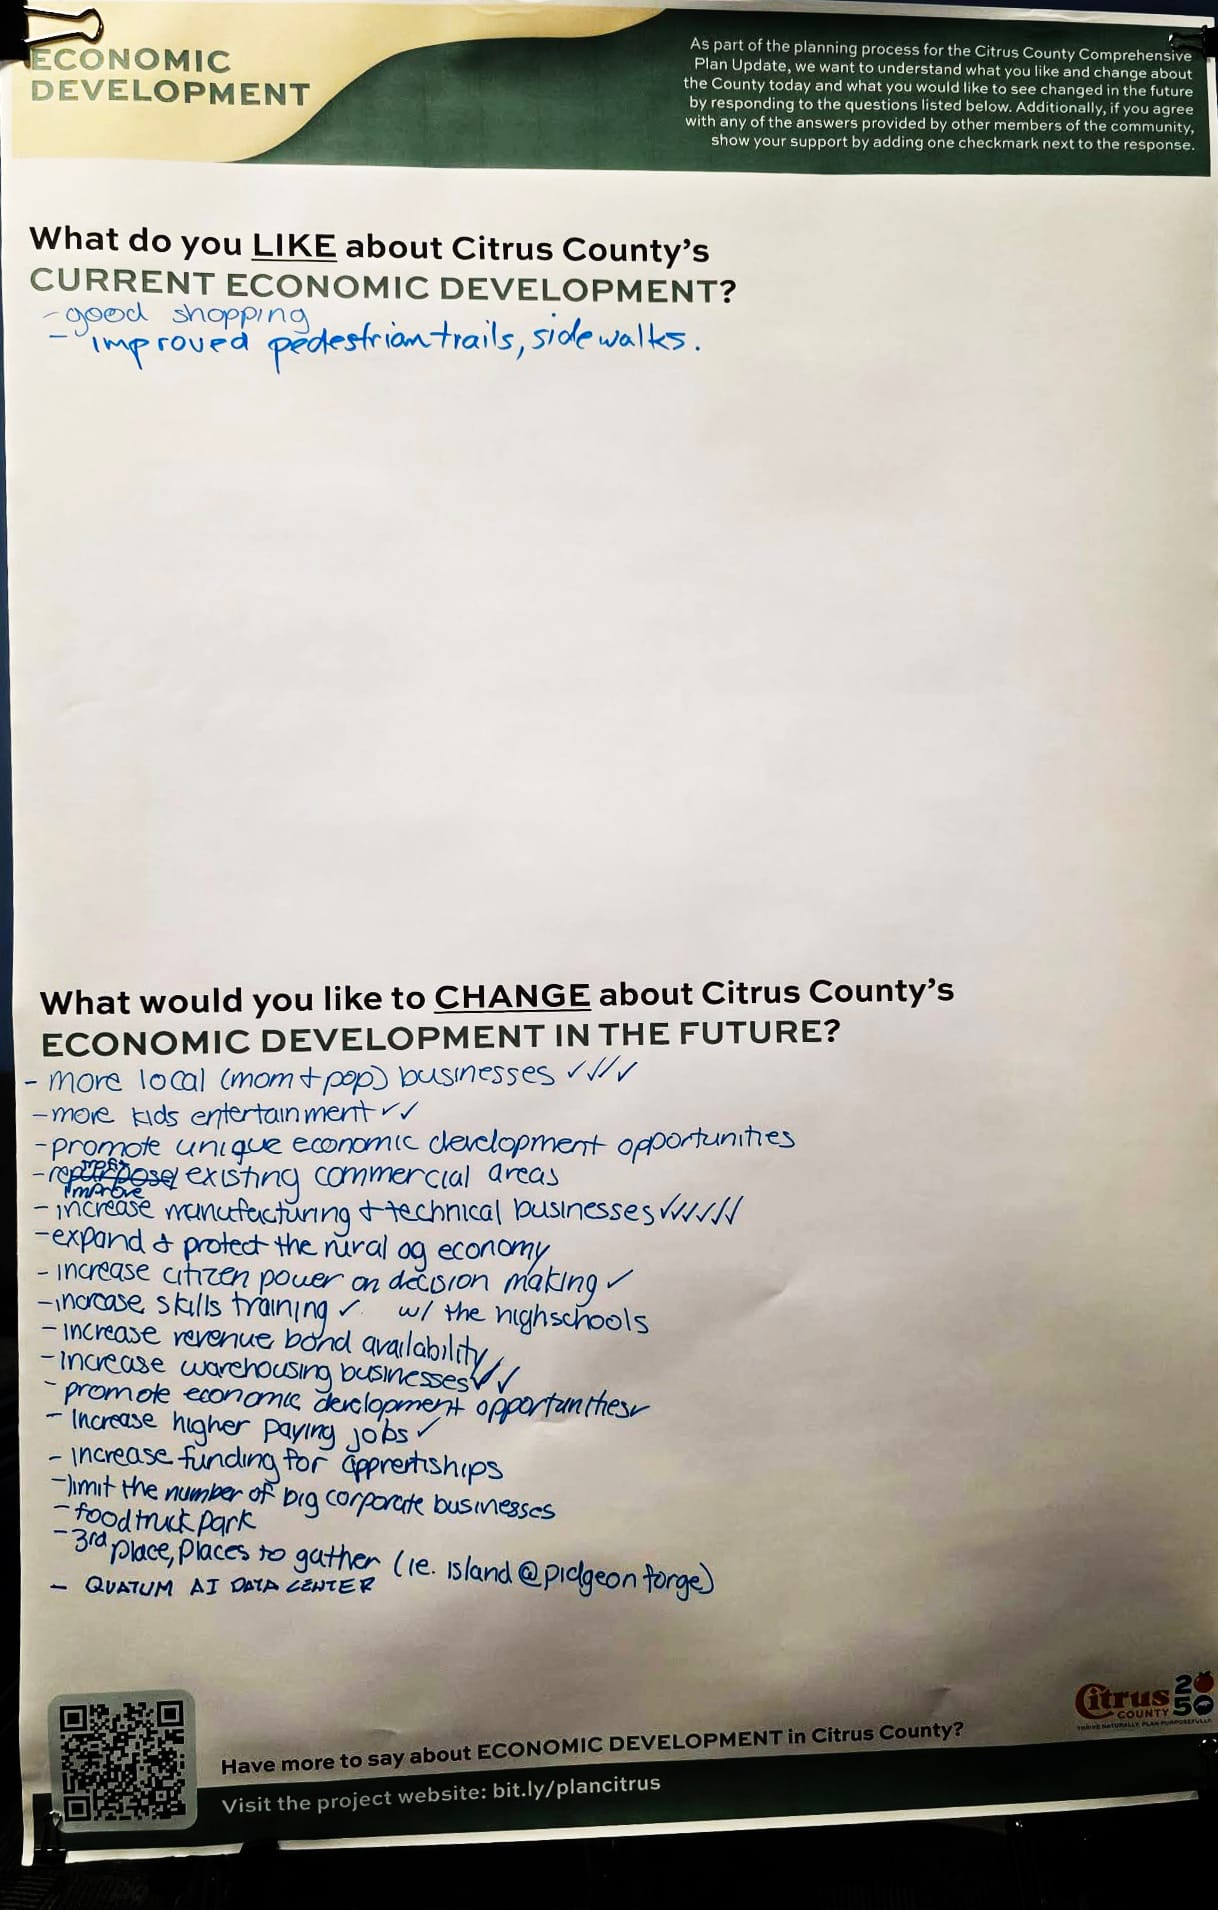 ECONOMIC
DEVELOPMENT
As part of the planning process for the Citrus County Comprehensive
Plan Update, we want to understand what you like and change about
the County today and what you would like to see changed in the future
by responding to the questions listed below. Additionally, if you agree
with any of the answers provided by other members of the community,
show your support by adding one checkmark next to the response.
What do you LIKE about Citrus County's
CURRENT ECONOMIC DEVELOPMENT?
- good shopping
- improved pedestrian trails, sidewalks.
What would you like to CHANGE about Citrus County's
ECONOMIC DEVELOPMENT IN THE FUTURE?
- more local (mom + pop) businesses ✓✓✓✓
- more kids entertainment ✓✓
- promote unique economic development opportunities
- existing commercial areas
improve
- increase manufacturing + technical businesses ✓✓✓✓✓✓
- expand & protect the rural ag economy
- increase citizen power on decision making ✓
- increase skills training ✓ w/ the highschools
- increase revenue bond availability
- increase warehousing businesses ✓✓✓
- promote economic development opportunities ✓
- Increase higher paying jobs ✓
- increase funding for apprentiships
- limit the number of big corporate businesses
- food truck park
- 3rd place, places to gather (ie. island @ pidgeon forge)
- QUATUM AI DATA CENTER
Citrus 2050
COUNTY
THRIVE NATURALLY. PLAN PURPOSEFULLY.
Have more to say about ECONOMIC DEVELOPMENT in Citrus County?
Visit the project website: bit.ly/plancitrus